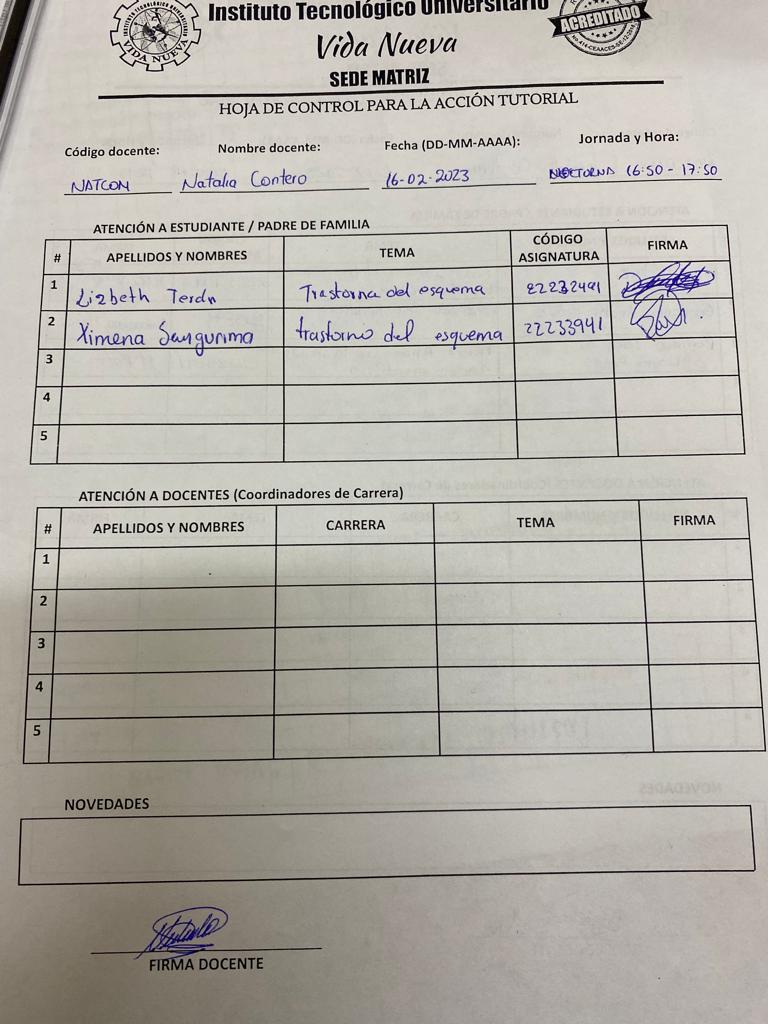 Instituto Tecnológico Universitario
Vida Nueva
SEDE MATRIZ
VIDA NUEVA
ACREDITADO
HOJA DE CONTROL PARA LA ACCIÓN TUTORIAL
Código docente: Nombre docente: Fecha (DD-MM-AAAA): Jornada y Hora:
NATCON Natalia Contero 16-02-2023 NOCTURNA 16:50 - 17:50
ATENCIÓN A ESTUDIANTE / PADRE DE FAMILIA
# APELLIDOS Y NOMBRES TEMA CÓDIGO ASIGNATURA FIRMA
1 Lizbeth Terán Trastorno del esquema 22232491
2 Ximena Sangurima trastorno del esquema 22233941
3
4
5
ATENCIÓN A DOCENTES (Coordinadores de Carrera)
# APELLIDOS Y NOMBRES CARRERA TEMA FIRMA
1
2
3
4
5
NOVEDADES
FIRMA DOCENTE